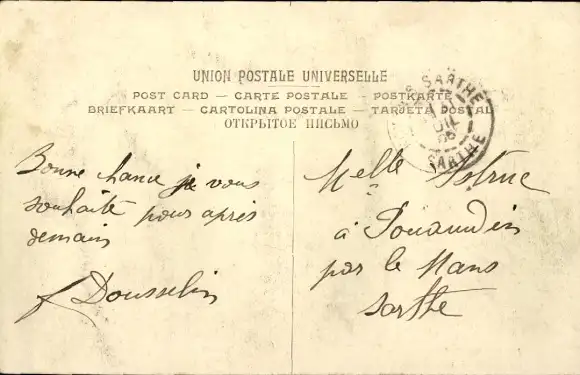 UNION POSTALE UNIVERSELLE
POST CARD — CARTE POSTALE — POSTKARTE
BRIEFKAART — CARTOLINA POSTALE — TARJETA POSTAL
ОТКРЫТОЕ ПИСЬМО
SARTHE
SARTHE
Bonne chance je vous
souhaite pour après
demain
Dousselin
Melle
à
par le Mans
Sarthe